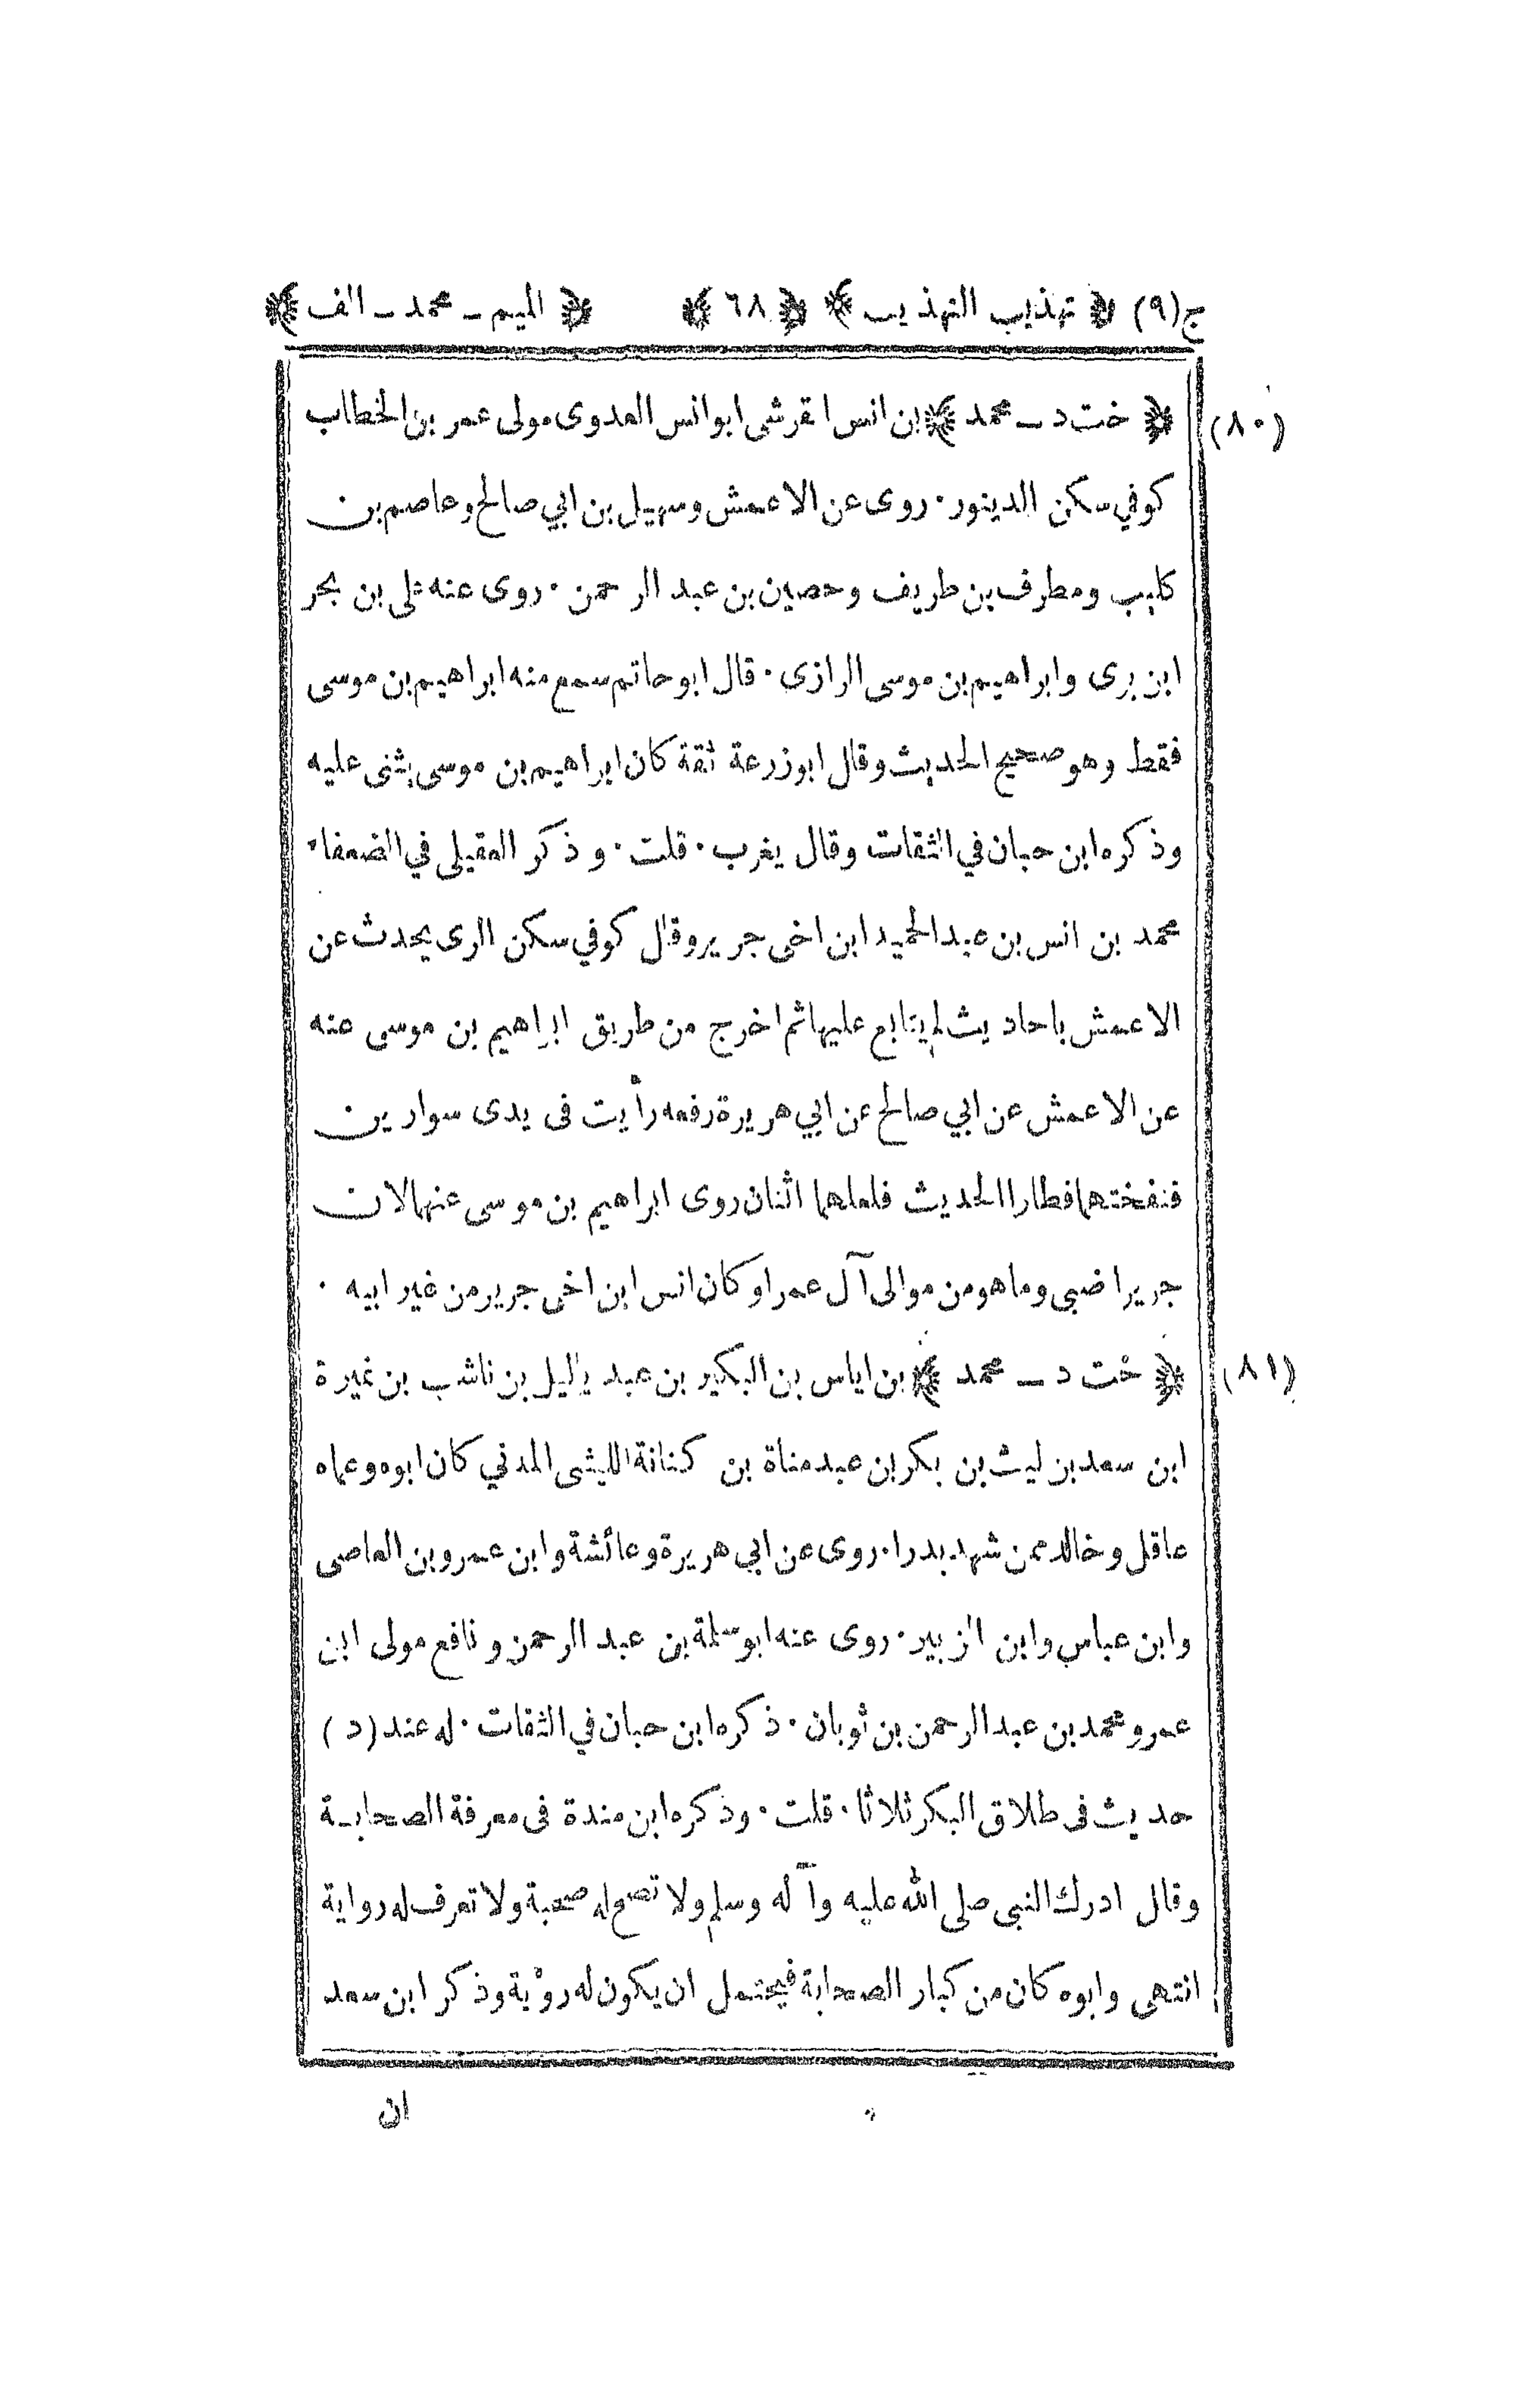 ج(٩) ﴿ تهذيب التهذيب ﴾ ﴿ ٦٨ ﴾ ﴿ الميم ـ محمد ـ الف ﴾
(٨٠) ﴿ خت د ـ محمد ﴾ بن انس القرشى ابو انس العدوى مولى عمر بن الخطاب
كوفي سكن الدينور٠ روى عن الاعمش وسهيل بن ابي صالح وعاصم بن
كليب ومطرف بن طريف وحصين بن عبد الرحمن ٠ روى عنه على بن بحر
ابن برى وابراهيم بن موسى الرازى ٠ قال ابو حاتم سمع منه ابراهيم بن موسى
فقط وهو صحيح الحديث وقال ابو زرعة ثقة كان ابراهيم بن موسى يثنى عليه
وذكره ابن حبان في الثقات وقال يغرب ٠ قلت ٠ وذكر العقيلى في الضعفاء
محمد بن انس بن عبد الحميد ابن اخى جرير وقال كوفي سكن الرى يحدث عن
الاعمش باحاديث لم يتابع عليها ثم اخرج من طريق ابراهيم بن موسى عنه
عن الاعمش عن ابي صالح عن ابي هريرة رفعه رأيت فى يدى سوارين
فنفختهما فطارا الحديث فلعلهما اثنان روى ابراهيم بن موسى عنهما لان
جريرا ضبى وما هو من موالى آل عمر او كان انس ابن اخى جرير من غير ابيه ٠
(٨١) ﴿ خت د ـ محمد ﴾ بن اياس بن البكير بن عبد ياليل بن ناشب بن غيرة
ابن سعد بن ليث بن بكر بن عبد مناة بن كنانة الليثى المدني كان ابوه وعماه
عاقل وخالد ممن شهد بدرا ٠ روى عن ابي هريرة وعائشة وابن عمرو بن العاصى
وابن عباس وابن الزبير ٠ روى عنه ابو سلمة بن عبد الرحمن ونافع مولى ابن
عمر ومحمد بن عبد الرحمن بن ثوبان ٠ ذكره ابن حبان في الثقات ٠ له عند (د)
حديث فى طلاق البكر ثلاثا ٠ قلت ٠ وذكره ابن مندة فى معرفة الصحابة
وقال ادرك النبى صلى الله عليه وآله وسلم ولا تصح له صحبة ولا تعرف له رواية
انتهى وابوه كان من كبار الصحابة فيحتمل ان يكون له رؤية وذكر ابن سعد
ان